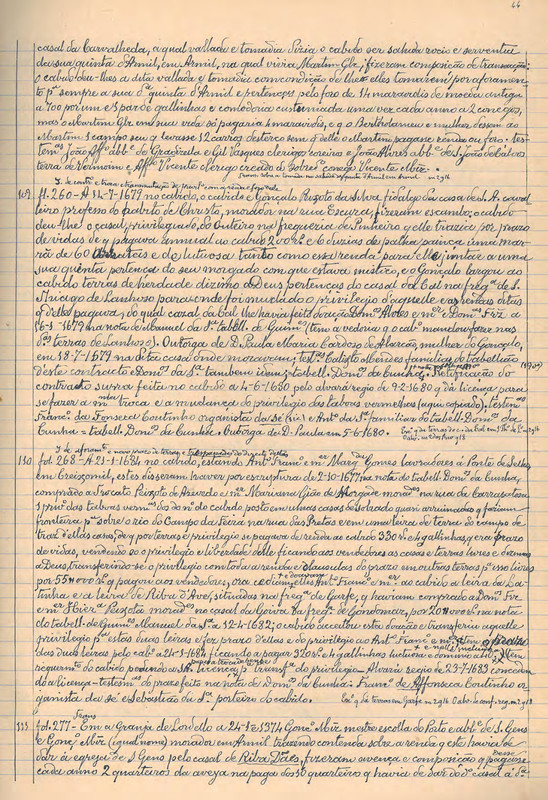 66
casal da Carvalheda, a qual vallada e tomadia dizia o cabido ser sahida rocio e serventia
da sua quinta d'Armil, em Armil, na qual vivia Martim Glz, fizeram composição de transacção:
o cabido deu-lhes a dita vallada e tomadia com condição de elles tomarem por aforamen-
to pª sempre a sua dª quinta d'Armil e pertenças pelo foro de 14 maravidis de moeda antiga
a 700 por um e 3 par de gallinhas e condoria custumada uma vez cada anno a 2 conegos,
mas o Martim Glz em sua vida só pagaria 4 maravidis, e q o Bertholameu e mulher dessem ao
Martim 1 campo seu q levasse 12 carros d'esterco sem q delle o Martim pagasse renda ou foro: tes-
temªs João Affº abbe de Gradizella e Gil Vasques clerigo
terra de Vermoim e Affº Vicente clerigo creado de Gonçº conego Vicente
109 fl. 260 - A 14-7-1677 no cabido, o cabido e Gonçalo Peixoto da Silva fidalgo da casa de S. A. caval-
leiro professo do habito de Christo, morador na sua Escura, fizeram escambo; o cabido
deu-lhe o casal, privilegiado, do Outeiro na freguezia de Pinheiro q elle trazia por prazo
de vidas de q pagava annual ao cabido 200 rs e 6 duzias de palha painça uma mar-
rã de 60 e de lutuosa tanto como essa renda para elle juntar a uma
sua quinta pertença do seu morgado com que estava mistico, e o Gonçalo largou ao
cabido terras de herdade dizimo a Deus pertença do casal da Cal na fregª de S.
Thiago de Lanhoso para onde foi mudado o privilegio d'aquelle e as rendas ditas
q d'elle pagava, do qual casal da Cal lhe havia feito doação Domºs Alves e mer Domªs Frz a
6-1-1679 na nota de Manuel da Sª tabell. de Guimªs (tem a vedoria q o cabº mandou fazer nas
dªs terras de Lanhoso). Outorga de D. Paula Maria Cardoso de Alarcão, mulher do Gonçalo,
em 18-7-1679 na dita casa onde moravam; testªs Calisto Mendes familiar do tabellião
deste contracto Domºs da Sª tambem idem; tabell. Domºs da Cunha. - Retificação do
contracto supra feita no cabido a 4-6-1680 pelo alvará regio de 9-2-3680 q dá licença para
se fazer a troca e a mudança do privilegio das tabuas vermelhas (aqui copiado). Testemªs
Francº da Fonseca Coutinho organista da Sé (sic) e Antº da Sª familiar do tabell. Domºs da
Cunha - tabell. Domºs da Cunha. Outorga de D. Paula em 5-6-1680.
110 fol. 268 - A 21-1-1684 no cabido, estando Antº Francº e mer Margda Gomes lavradores á Ponte de Selho
em Creixomil, estes disseram haver por escriptura de 2-10-1677 na nota do tabell. Domºs da Cunha,
comprado a Trocato Peixoto d'Azevedo e mer Marianna Gião de Morgade moradºs na rua da Carrapatosa
1 privº das tabuas vermªs do do nº do cabido posto em umas casas de sobrado quasi arruinadas q faziam
fronteira pª sobre o rio do Campo da Feira na rua das Pretas e em uma leira de terra do campo de
traz d'ellas casas, de q por terras e privilegio se pagava de renda ao cabido 330 rs e 4 gallinhas q era prazo
de vidas, vendendo só o privilegio e liberdade d'elle ficando aos vendedores as casas e terras livres e dizimas
a Deus, transferindo-se o privilegio com toda a renda e clausulas do prazo em outras terras pª isso livres
por 55#000 rs q pagou aos vendedores, ora cediam elles Antº Francº e mer ao cabido a leira da La-
tinha e a leira de Riba d'Ave, situadas na fregª de Garfe, q haviam comprado a Domºs Frz
e mer Hierª Peixota moradºs no casal da Goiva da fregª de Gondomar, por 20#000 rs na nota
do tabell. de Guimªs Manuel da Sª a 12-4-1682; o cabido acceitou esta doação e transferiu aquelle
privilegio pª estas duas leiras e fez prazo d'ellas e do privilegio ao Antº Francº e mer. Item o prazo
das duas leiras pelo cabº a 21-1-1684 ficando a pagar 320 rs e 4 gallinhas
requerimto do cabido pedindo a S. A. licença pª transfª do privilegio - Alvará regio de 23-7-1683 conceden-
do a licença - testemªs do prazo feito na nota de Domºs da Cunha: Francº de Affonseca Coutinho or-
ganista da Sé e Sebastião da Sª porteiro do cabido.
111 fol. 277 - Em a Granja de Lordello a 24-1-1374 Gonçº Miz mestre escolla do Porto e abbe de S. Gens
e Gonçº Miz (igual nome) morador em Armil trazendo contenda sobre a renda q este havia de
dar á egreja de S. Gens pelo casal de Riba Dães, fizeram avença e composição q pagasse
cada anno 2 quarteiros da aveya na paga dos 10 quarteiros q havia de dar do dº casal á dª